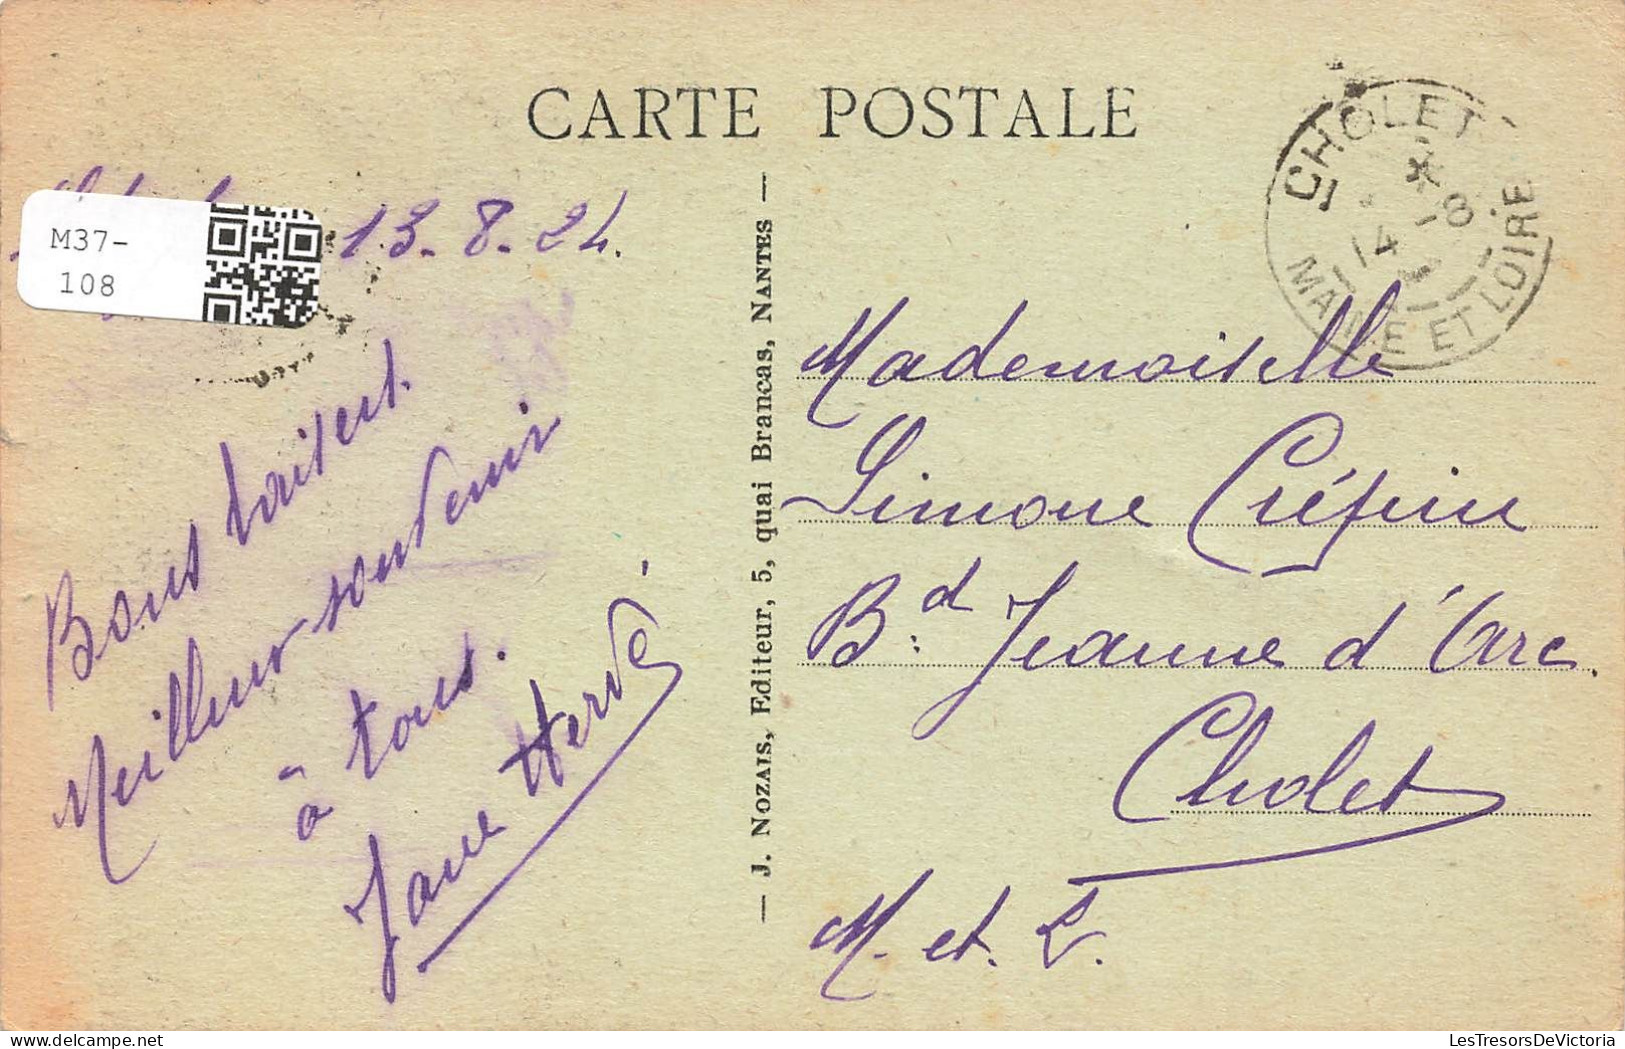 CARTE POSTALE
CHOLET
* 
14 -8
MAINE ET LOIRE
M37-
108
13-8-24.
Bons baisers.
Meilleur souvenir
à tous.
Jane Hervé
— J. NOZAIS, Editeur, 5, quai Brancas, NANTES —
Mademoiselle
Simone Crépin
Bd. Jeanne d'Arc.
Cholet
M. et L.
LesTresorsDeVictoria